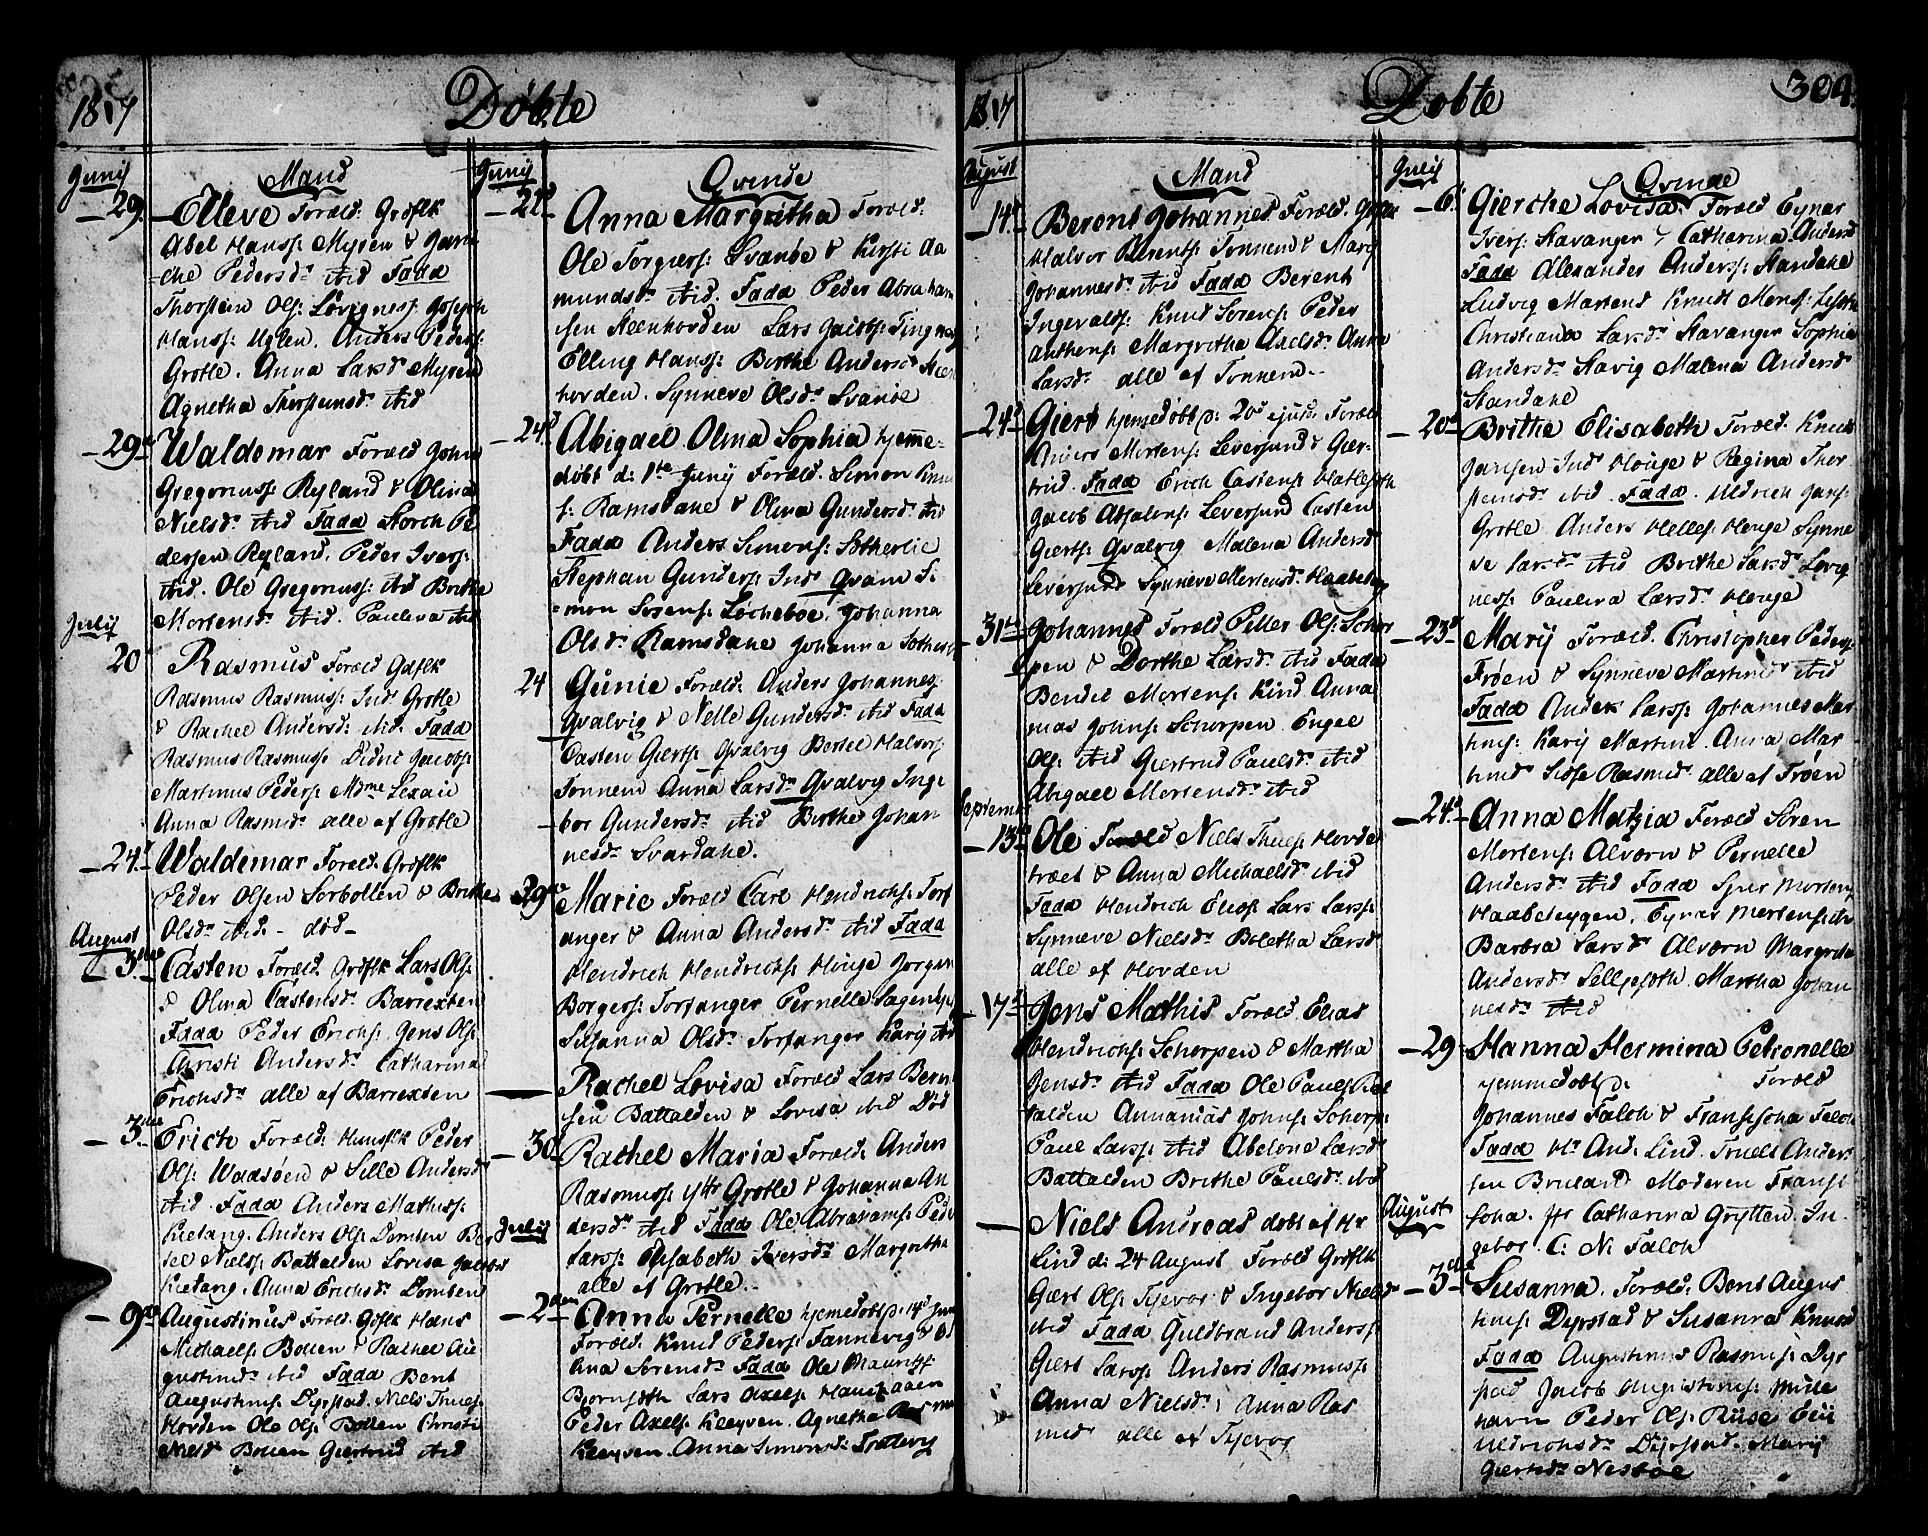 1817
Döbte
Junij
Mand
29. Elleve Foræld: Grosflk
Abel Hanss: Myren &
Pedersdr ibid Fadd
Thorsten Ols: Lövigness: Joseph
Hanss: Uglen. Anders Peders:
Grotle. Anna Larsd Myren
Agnetha Thorstensdr. ibid
29. Waldemar Foræld
Gregoriuss: Ryland & Olina
Nielsdr ibid Fadd Storch Pe
dersen Ryland. Peder Ivers:
ibid. Ole Gregoriuss: ibid Brithe
Mortensdr ibid. Pauleva ibid
Julij
20 Rasmus Foræld Gaflk
Rasmus Rasmuss: Ind Grotle
& Rachel Andersd: ibid: Fadd
Rasmus Rasmuss: Jacobs:
Martinus Peders: Mdme Lexau
Anna Rasmdr alle af Grotle
24. Waldemar Foræld: Grosflk
Peder Olsen Sorbotten & Brithe
Olsdr ibid. - död -
August
3die Casten Foræld. Grosflk Lars Ols:
& Olina Castensdr. Barrexten
Fadd Peder Erichs: Jens Ols:
Christi Andersdr Catharina
Erichsdr alle af Barrexten
3die Erich Foræld: Huusflk Peder
Ols: Waasöen & Sille Andersdr
ibid. Fadd Anders Mathiss:
Kielang. Anders Ols: Domben Ber
tel Niels: Battalden Lovisa
Kielang. Anna Erichsdr Domben
9de Augustinus Foræld Gosflk Hans
Michaels: Botten & Rachel Au
gustinsd ibid Fadd Bent
Augustinus: Dyrstad. Niels Thues:
Hovden Ole Ols: Botten Christi
Nielsd Botten Giertrud ibid
Junij
Qvinde
21. Anna Margretha Foræld:
Ole Torgers: Svanöe & Kirsti Aa
mundsdr ibid. Fadd Peder Abraham
sen Steenhovden Lars Jacobs: Tingnes
Elling Hanss: Birthe Andersd Steen
hovden. Synneve Olsdr Svanöe
24d. Abigael Olina Sophia hjemme-
döbt d: 1te Junij Foræld: Simon Knu
s: Ramsdahe & Olina Gundersdr ibid
Fadd Anders Simons: Sötherlie
Stephan Gunders: Ind Qvam Si
mon Svens: Locheboe. Johanna
Olsdr Ramsdahe Johanna Sötherlie
24 Gunie Foræld: Anders Johannes:
Qvalvig & Nelle Gundersdr ibid Fadd
Casten Gierts: Qvalvig Bertel Halvors:
Tonnem Anna Larsdr Qvalvig Inge
bor Gundersdr ibid Birthe Johan
nesdr Svardahe.
29de Marie Foræld Carl Hendrichs: Tors
anger & Anna Andersdr ibid Fadd
Hendrich Hendrichs: Houge Jörgen
Borgers: Torsanger Pernelle
Susanna Olsdr Torsanger Karij ibid
Rachel Lovisa Foræld Lars Bern
sen Battalden & Lovisa ibid Död
30. Rachel Maria Foræld: Anders
Rasmuss: Ytr Grotle & Johanna An
dersdr ibid Fadd Ole Abrahams: Peder
Julij
Larss: Elisabeth Iversdr Margretha
alle af Grotle..
2den Anna Pernelle hjemedöbt
Foræld: Knud Peders: Fannevig &
ana Sörensdr Fadd Ole Mauritss:
Bjornseth Lars Axels:
Peder Axels: Kleyven. Agnetha
Kleyven. Anna Simonsdr
304.
1817
Döbte
August
Mand
14d. Berent Johannes Foræld. Gosflk
Halvor Berents: Tonnem & Marij
Johannesdr ibid Fadd Berent
Ingevalds: Knud Sörens: Peder
Anthons: Margretha Axelsdr Anna
Larsdr alle af Tonnem..
24d. Giert hjemedöbt d: 20d ejusd Foræld
Anders Mortens: Leversund & Gier
trud. Fadd Erich Castens: Hatleseth
Jacob Absalons: Leversund Casten
Gierts: Qvalvig Malena Andersd
Leversund Synneve Mortensdr Haabel
31te Johannes Foræld Peder Ols: Schor
pen & Dorthe Larsdr ibid Fadd
Bendic Mortens: Kind Anna
nias Johns: Schorpen Engel
Ols: ibid Giertrud Paulsdr ibid
Abigael Mortensdr ibid
Septembr
13de Ole Foræld Niels Thues: Hovde
træet & Anna Michaelsdr ibid
Fadd Hendrich Elias: Lars Larss:
Synneve Nielsdr Boletha Larsd
alle af Hovden
17d Jens Mathis Foræld Elias
Hendrichs: Schorpen & Martha
Jensdr ibid Fadd Ole Pauls: Bat
talden Annanias Johns: Schorp:
Paul Larss: ibid Abelone Larsd
Battalden Brithe Paulsdr ibid
Niels Andreas döbt af Hr
Lind d: 24 August Foræld Grosflk
Giert Ols: Tyevog & Ingebor Nielsdr
ibid Fadd Guldbrand Anderss:
Giert Larss: Anders Rasmuss:
Anna Nielsdr Anna Ras
musd alle af Tyevog
Julij
Qvinde
6. Gierthe Lovisa. Foræld Eynar
Ivers: Stavanger & Catharina Andersd
Fadd Alexander Anderss: Standahe
Ludvig Martens Knudt Mons:
Christiana Larsdr Stavanger Sophia
Andersdr Stavig Malena Andersd
Standahe
20de Brithe Elisabeth Foræld: Knudt
Jansen Ind Houge & Regina Thor
stensdr ibid. Fadd. Uldrich Jans:
Grotle Anders Helles: Houge Synne
ve Larsdr ibid Brithe Larsd Lövig
ness: Paulina Larsdr Houge
23d Marij Foræld. Christopher Peders:
Fröen & Synneve Martinsd ibid
Fadd Anders Larss: Johannes Mar
tins: Karij Martins Anna Mar
tinsd Sidse Rasmsdr alle af Fröen
24d. Anna Matzia Foræld Sören
Mortens: Alvorn & Pernelle
Andersdr ibid Fadd Sper Mortens:
Haabeleygen. Eynar Mortens: ibid
Barbra Larsdr Alvorn Margretha
Andersdr Sellieseth Martha Johan
nesdr ibid
29 Hanna Hermina Petronelle
hjemmedöbt d. Foræld
Johannes Falch & Fransisha Falch
Fadd Hr And: Lind. Truels Anders
sen Bruland Moderen Fransi
scha. Jfr Catharina Grytten. In
gebor C: N: Falch
August
3die Susanna. Foræld: Bent Augus
tins: Dyrstad & Susanna Knusd
Fadd Augustinus Rasmus: Dyr
stad Jacob Augustinus: Mille
havn Peder Ols: Risse Eli
Uldrichsdr Dyrstad. Marij
Giertsdr Nesböe